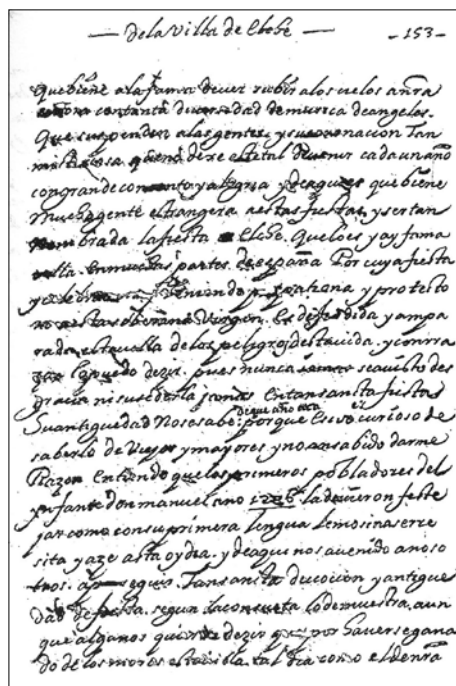 de la Villa de Elche
-153-
que biene a la fama de ver subir a los cielos a nra
con tanta diversidad de musica de angeles.
Que suspenden a las gentes, y su coronacion Tan
misteriosa, que no dexe este tal de venir cada un año
con grande contento y alegria y de aqui es que biene
mucha gente estrangera a estas fiestas, y ser tan
nombrada la fiesta de Elche. Que lo es y ay fama
en muchas partes de españa Por cuya fiesta
y teniendo por patrona y protecto
ra esta soberana Virgen. Es defendida y ampa
rada esta villa de los peligros desta vida. y con rra
zon lo puedo dezir. pues nunca se a visto des
gracia ni sucederla jamas en tan sancta fiesta
Su antiguedad No se sabe de que año aca porque E sido curioso de
saberlo de Viejos y mayores y no an sabido darme
Razon Entiendo que los primeros pobladores del
ynfante don manuel ano la devieron feste
jar como con su primera lengua lemosina se rre
sita y aze asta oy dia. y de aqui nos a venido a noso
tros. seguir. Tan sancta devocion y antigue
dad de fiesta. segun la consueta lo demuestra, aun
que algunos quieren dezir que por haverse gana
do de los moros esta villa tal dia como el de nra